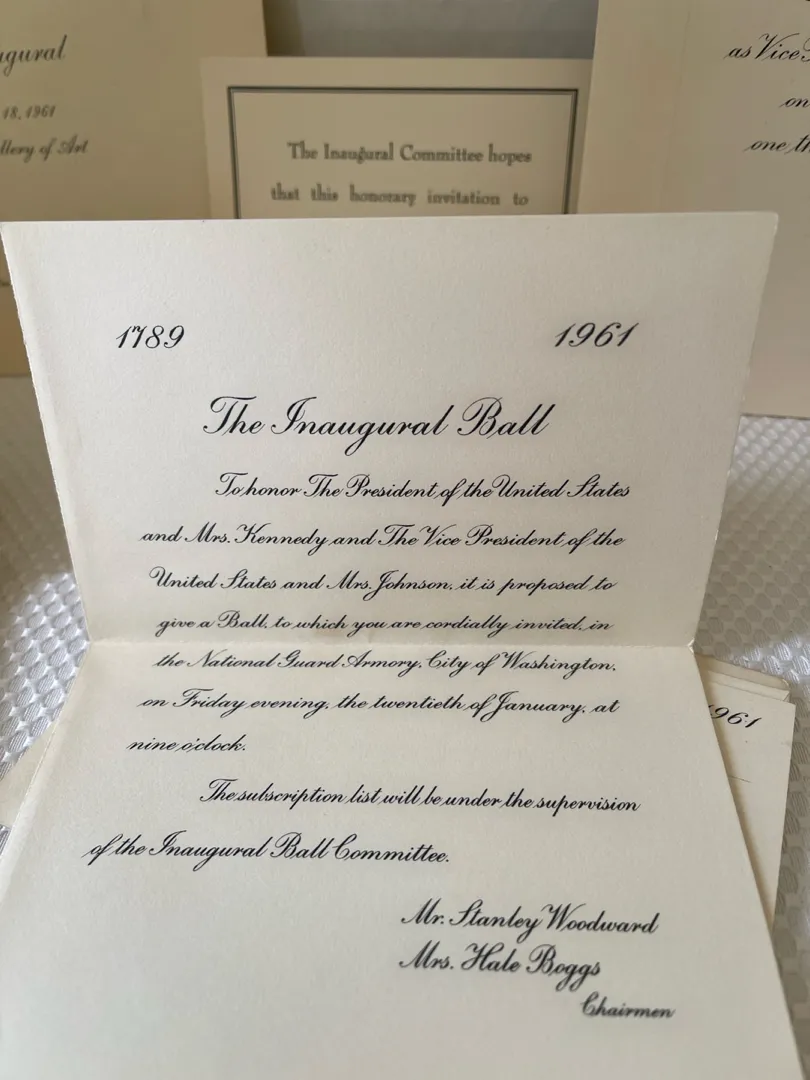 ugural
18, 1961
llery of Art
The Inaugural Committee hopes
that this honorary invitation to
as Vice
on
one th
1789 1961
The Inaugural Ball
To honor The President of the United States
and Mrs. Kennedy and The Vice President of the
United States and Mrs. Johnson, it is proposed to
give a Ball, to which you are cordially invited, in
the National Guard Armory, City of Washington,
on Friday evening, the twentieth of January, at
nine o'clock.
The subscription list will be under the supervision
of the Inaugural Ball Committee.
Mr. Stanley Woodward
Mrs. Hale Boggs
Chairmen
1961